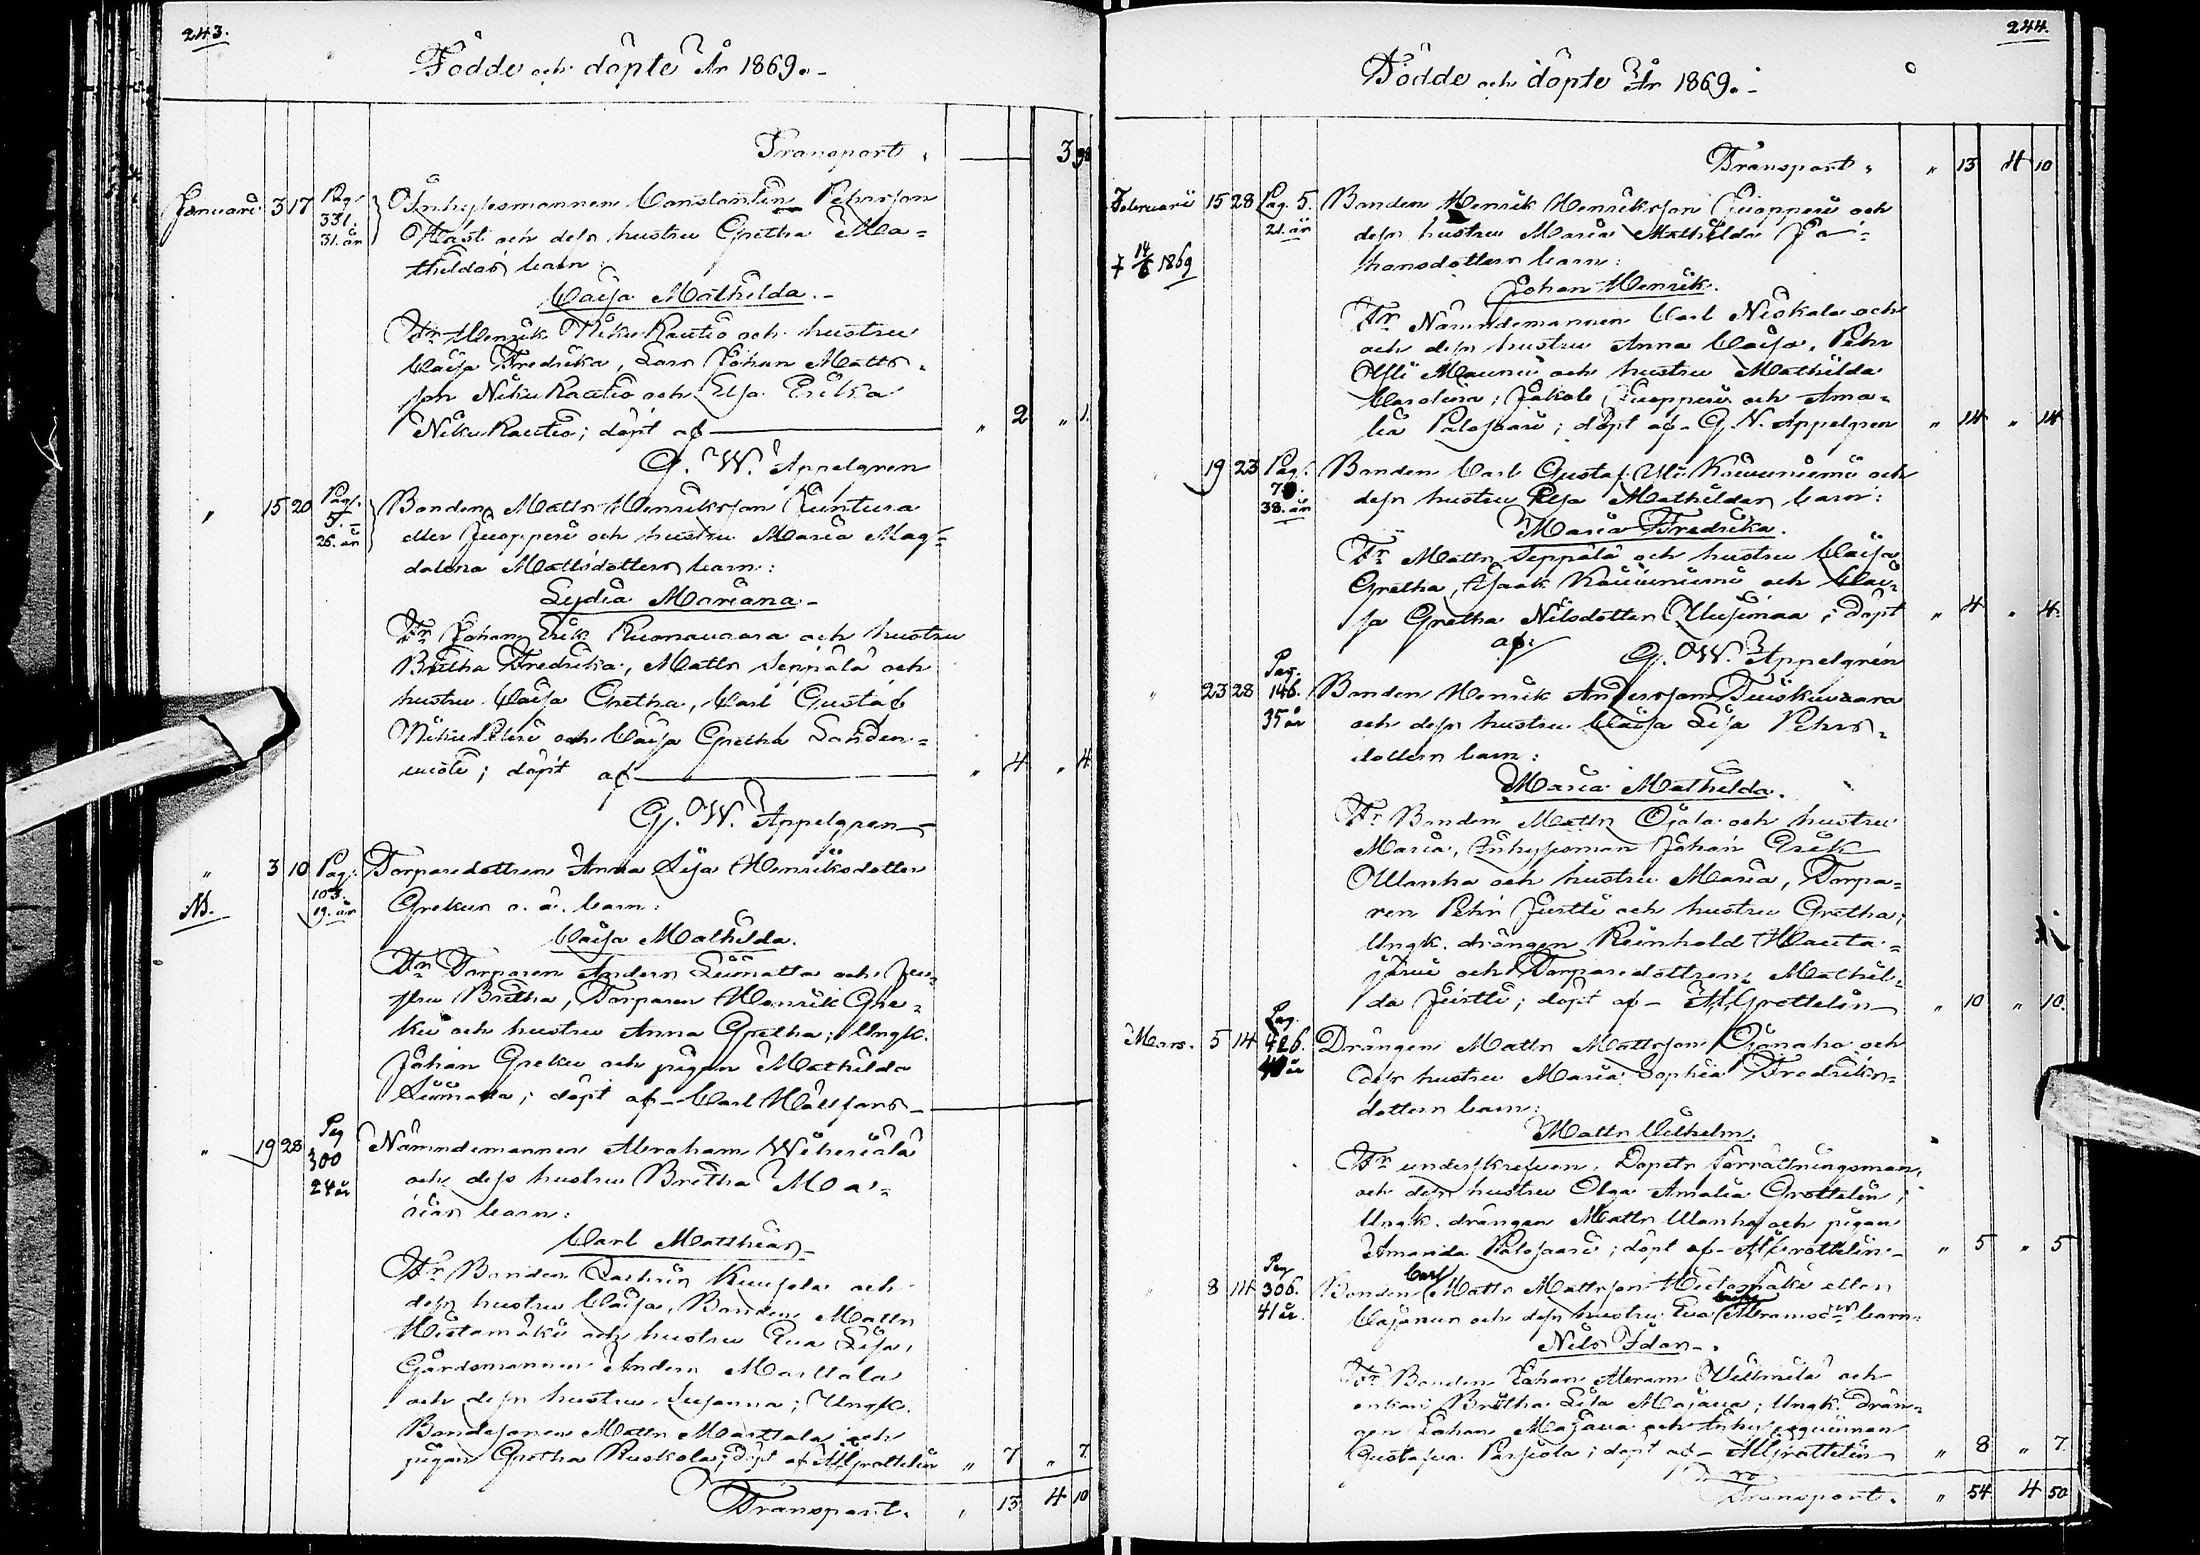 243.
Födde och döpte År 1869.-
Transport.
Januari 3 17 Pag. 331. 31. år Inhysesmannen Constantin Pehrsson
och dess hustru Gretha Ma=
thildas barn:
Caisa Mathilda.-
Fr Henrik Niku Rautio och hustru
Caisa Fredrika, Lars Johan Matts=
son Niku Rautio och Elsa Erika
Niku Rautio; döpt af " 2 " 1.
G. W. Appelgren
" 15 20 Pag. 5. 26. år Bonden Matts Henriksson Kuntura
eller Juopperi och hustru Maria Mag=
dalena Mattsdotters barn:
Lydia Mariana-
Fr Johan Erik Kuonavaara och hustru
Britha Fredrika, Matts Seppälä och
hustru Caisa Gretha, Carl Gustaf
och Caisa Gretha Landen=
döpt af " 4 " 4
G. W. Appelgren
" 3 10 Pag. 103. 19. år Torparedottren Anna Lisa Henriksdotter
Grekus o. ä. barn:
Caisa Mathilda.
Fr Torparen Anders Siimatta och hu=
stru Britha, Torparen Henrik Gre=
ku och hustru Anna Gretha; Ungk.
Johan Greku och pigan Mathilda
Siimatta; döpt af - Carl Hällfors-
" 19 28 Pag 300 24 år Nämndemannen Abraham Wiheriälä
och dess hustru Britha Ma=
rias barn:
Carl Matthias-
Fr Bonden Zachris Kuusela och
dess hustru Caisa, Bonden Matts
Hietamäki och hustru Eva Lisa,
Gårdsmannen Anders Marttala
och dess hustru Susanna; Ungk.
Bondesonen Matts Marttala och
pigan Gretha Ruokola; döpt af A. Grottelin " 7 " 7.
Transport. " 13 4 10
244.
Födde och döpte År 1869.-
Transport. " 13 4 10
Februari 15 28 Pag. 5. 21. år Bonden Henrik Henriksson Juopperi och
dess hustru Maria Mathilda Jo=
hansdotters barn:
† 14/6 1869
Johan Henrik.
Fr Nämndemannen Carl Niskala och
och dess hustru Anna Caisa, Pehr
Ylli Maunu och hustru Mathilda
Carolina; Jakob Juopperi och Ama=
lia Palosaari; döpt af - G. W. Appelgren " 14 " 14
19 23 Pag. 38. år Bonden Carl Gustaf Yli Kauvuniemi och
dess hustru Elsa Mathildas barn:
Maria Fredrika.
Fr Matts Seppälä och hustru Caisa
Gretha, Isaak Kauvuniemi och Cai=
sa Gretha Nilsdotter Uusimaa; döpt " 4 " 4.
af:
G. W. Appelgrén
" 23 28 Pag. 146. 35 år Bonden Henrik Andersson Tuiskuvaara
och dess hustru Caisa Lisa Pehrs=
dotters barn:
Maria Mathilda.
Fr Bonden Matts Ojala och hustru
Maria, Inhysesman Johan Erik
Ulanha och hustru Maria, Torpa=
ren Pehr Juntti och hustru Gretha;
Ungk. drängen Reinhold Hauta=
järvi och Torparedottren Mathil=
da Juntti; döpt af - A. Grottelin " 10 " 10.
Mars. 5 14 Pag. 426. 40 år Drängen Matts Mattsson Ojanaho och
dess hustru Maria Sophia Fredriks=
dotters barn:
Matts Wilhelm.
Fr underskrefven, Dopets förrättningsman,
och dess hustru Olga Amalia Grottelin;
Ungk. drängen Matts Ulanha och pigan
Amanda Palosaari; döpt af - A. Grottelin- " 5 " 5
" 8 14 Pag 306. 41 år Bonden Carl Matts Mattsson Hietamäki eller
Cajanus och dess hustru Eva Abramsdrs barn:
Nils Idar-.
Fr Bonden Johan Abram Willmilä och
enkan Britha Lisa Majava; Ungk. drän=
gen Johan Majava och Inhysesqvinnan
Gustafva Parpiola; döpt af - A. Grottelin " 8 " 7.
Transport. " 54 4 50